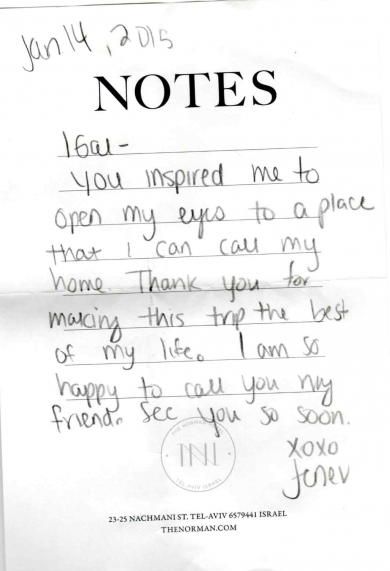 Jan 14, 2015
NOTES
Igal-
You inspired me to
open my eyes to a place
that I can call my
home. Thank you for
making this trip the best
of my life. I am so
happy to call you my
friend. See you so soon.
xoxo
THE NORMAN
TEL-AVIV ISRAEL
23-25 NACHMANI ST. TEL-AVIV 6579441 ISRAEL
THENORMAN.COM